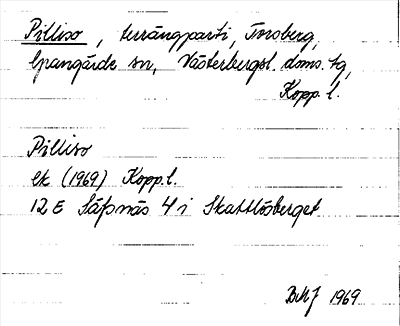 Pilliso, terrängparti, Torsberg,
Ljusnarsbergs sn, Västerbergsl. doms. tg,
Kopp. l.
Pilliso
ek (1969) Kopp. l.
12 E Säfsnäs 4 i Skattlösberget
1969